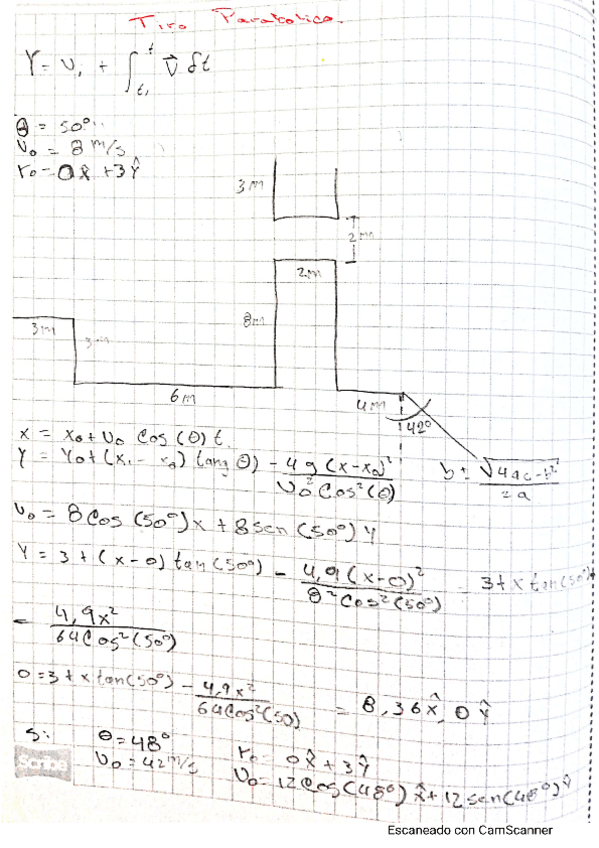 Tiro Parabolico.
Y = v, + ∫ₜ₁ᵗ V⃗ δt
θ = 50°
v₀ = 8 m/s
r₀ = 0x̂ + 3ŷ
3m
2m
2m
3m
3m
8m
6m
4m
42°
x = x₀ + v₀ Cos(θ)t.
b ± √4ac-b² / 2a
Y = Y₀ + (x₁ - x₀) (tang θ) - 4,9(x-x₀)² / v₀² Cos²(θ)
v₀ = 8 Cos (50°)x + 8 sen (50°) y
Y = 3 + (x-0) tan(50°) - 4,9(x-0)² / 8² Cos²(50°) 3+x tan(50°)
= 4,9x² / 64 Cos²(50°)
0 = 3 + x tan(50°) - 4,9x² / 64 Cos²(50) = 8,36x̂, 0ŷ
Si: θ = 48° r₀ = 0x̂ + 3ŷ
v₀ = 42 m/s v₀ = 12 Cos(48°)x̂ + 12 sen(48°)ŷ
Scribe
Escaneado con CamScanner